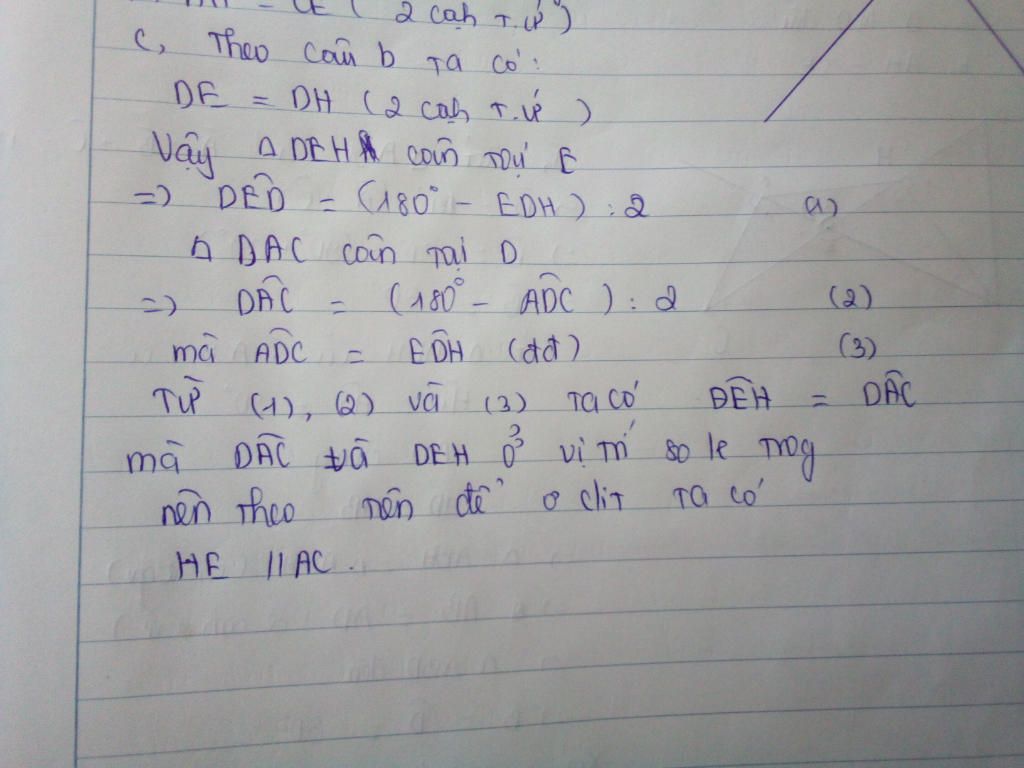 = CE ( 2 cạh T.Ứ )
c, Theo câu b Ta có:
DE = DH ( 2 cạh T.Ứ )
Vậy Δ DEH cân Tại E
=> DÊD = (180° - EDH) : 2 (1)
Δ DAC cân Tại D
=> DÂC = (180° - ADC) : 2 (2)
mà ADC = EDH (đđ) (3)
Từ (1), (2) và (3) Ta có DÊH = DÂC
mà DÂC và DEH ở vị trí so le trog
nên Theo tiên đề ơ clit Ta có
HE // AC.